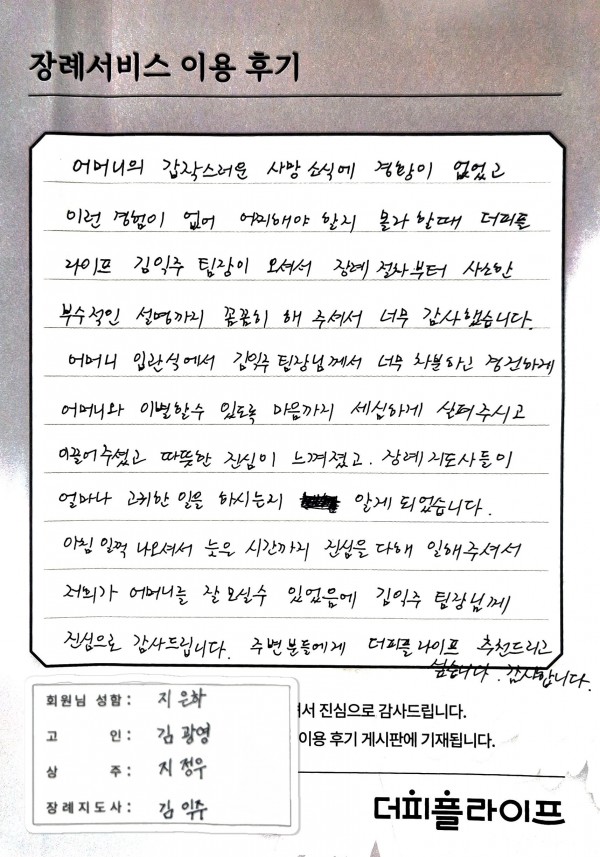 장례서비스 이용 후기
어머니의 갑작스러운 사망 소식에 경황이 없었고
이런 경험이 없어 어찌해야 할지 몰라 할때 더피플
라이프 김익주 팀장이 오셔서 장례 절차부터 사소한
부수적인 설명까지 꼼꼼히 해 주셔서 너무 감사했습니다.
어머니 입관식에서 김익주 팀장님께서 너무 차분하고 경건하게
어머니와 이별할수 있도록 마음까지 세심하게 살펴주시고
이끌어주셨고 따뜻한 진심이 느껴졌고. 장례지도사들이
얼마나 고귀한 일을 하시는지 알게 되었습니다.
아침 일찍 나오셔서 늦은 시간까지 진심을 다해 일해주셔서
저희가 어머니를 잘 모실수 있었음에 김익주 팀장님께
진심으로 감사드립니다. 주변분들에게 더피플라이프 추천드리고
싶습니다. 감사합니다.
회원님 성함: 지은화
고 인: 김광영
상 주: 지정우
장례지도사: 김익주
서 진심으로 감사드립니다.
이용 후기 게시판에 기재됩니다.
더피플라이프